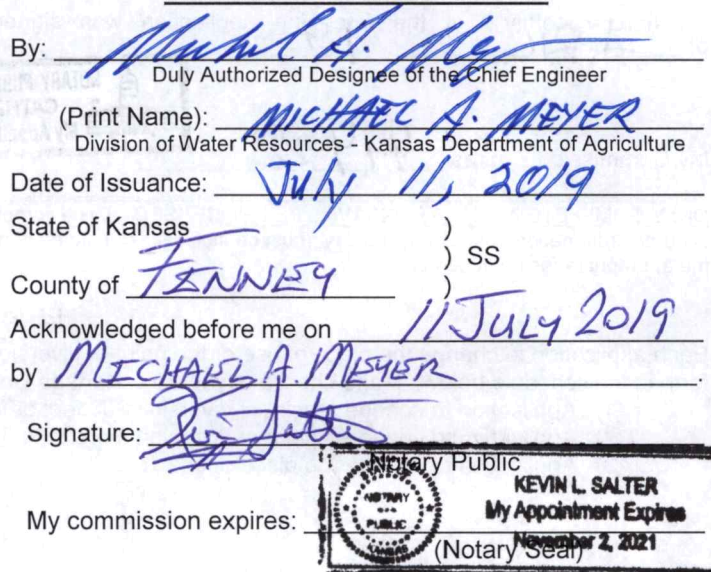 By: Michael A. Meyer
Duly Authorized Designee of the Chief Engineer
(Print Name): MICHAEL A. MEYER
Division of Water Resources - Kansas Department of Agriculture
Date of Issuance: July 11, 2019
State of Kansas )
) SS
County of FINNEY )
Acknowledged before me on 11 JULY 2019
by MICHAEL A MEYER.
Signature: Kevin Salter
Notary Public
NOTARY PUBLIC KANSAS
KEVIN L. SALTER
My Appointment Expires
November 2, 2021
My commission expires:
(Notary Seal)